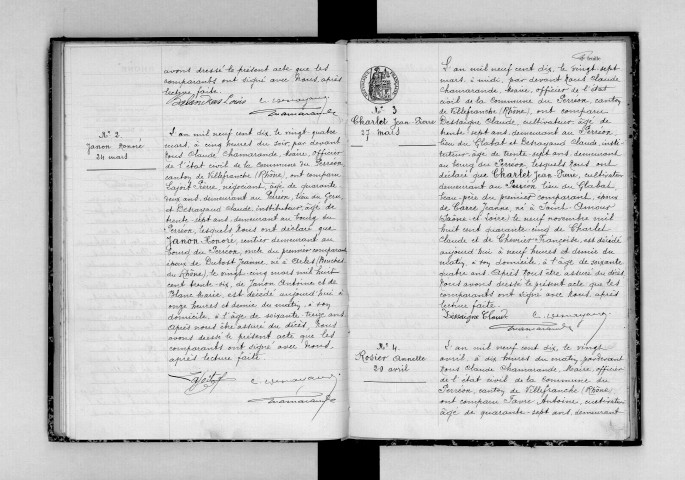 avons dressé le présent acte que les
comparants ont signé avec Nous, après
lecture faite.
N° 2
Janon Honoré
24 mars
L'an mil neuf cent dix, le vingt quatre
mars, à cinq heures du soir, par devant
Nous Claude Chamarande, Maire, officier
de l'état civil de la Commune du Perréon,
canton de Villefranche (Rhône), ont comparu
Pierre, négociant, âgé de quarante
deux ans, demeurant au Perréon, lieu du
et Betrayaud Claude, instituteur, âgé de
trente-sept ans, demeurant au bourg du
Perréon, lesquels Nous ont déclaré que
Janon Honoré, rentier demeurant au
bourg du Perréon, oncle du premier comparant
époux de Dubost Jeanne, né à Arles (Bouches
du Rhône), le vingt-cinq mars mil huit
cent trente-six, de Janon Antoine et de
Blanc Marie, est décédé aujourd'hui à
onze heures et demie du matin, à son
domicile, à l'âge de soixante treize ans.
Après nous être assuré du décès, Nous
avons dressé le présent acte que les
comparants ont signé avec Nous,
après lecture faite.
N° 3
Charlet Jean Pierre
27 mars
L'an mil neuf cent dix, le vingt-sept
mars, à midi, par devant Nous Claude
Chamarande, Maire, officier de l'état
civil de la Commune du Perréon, canton
de Villefranche (Rhône), ont comparu
Dessaigne Claude, cultivateur âgé de
trente sept ans, demeurant au Perréon,
lieu du Glabat et Betrayaud Claude, insti-
tuteur, âgé de trente sept ans, demeurant
au bourg du Perréon, lesquels Nous ont
déclaré que Charlet Jean-Pierre, cultivateur
demeurant au Perréon lieu du Glabat
beau-père du premier comparant, époux
de Carré Jeanne, né à Saint Amour
(Saône et Loire), le neuf novembre mil
huit cent quarante-cinq de Charlet
Claude et de Françoise, est décédé
aujourd'hui à neuf heures et demie du
matin, à son domicile, à l'âge de soixante
quatre ans. Après nous être assuré du décès
Nous avons dressé le présent acte que les
comparants ont signé avec Nous, après
lecture faite.
Dessaigne Claude
N° 4
Rosier Annette
20 avril
L'an mil neuf cent dix, le vingt
avril, à dix heures du matin, par devant
Nous Claude Chamarande, Maire, officier
de l'état civil de la Commune du
Perréon, canton de Villefranche (Rhône)
ont comparu Favre Antoine, cultivateur
âgé de quarante-sept ans, demeurant